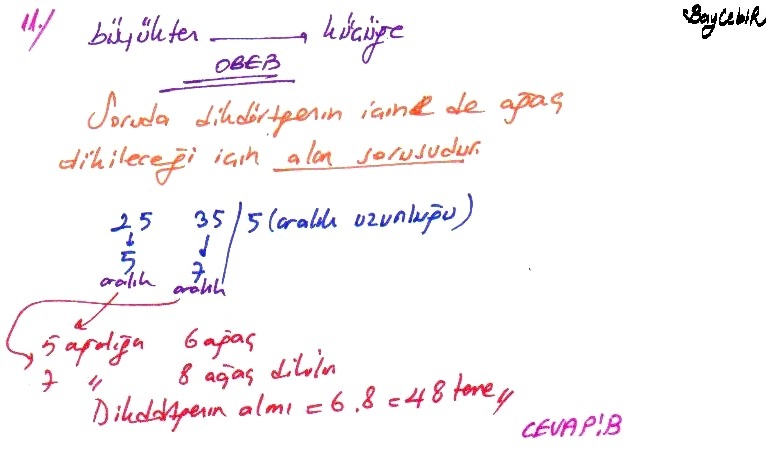 Baycebir
11.) büyükten → küçüğe
OBEB
Soruda dikdörtgenin içine de ağaç
dikileceği için alan sorusudur.
25 35 / 5 (aralık uzunluğu)
↓ ↓
5 7
aralık aralık
5 aralığa 6 ağaç
7 " 8 ağaç dikilir
Dikdörtgenin alanı = 6.8 = 48 tane //
CEVAP: B